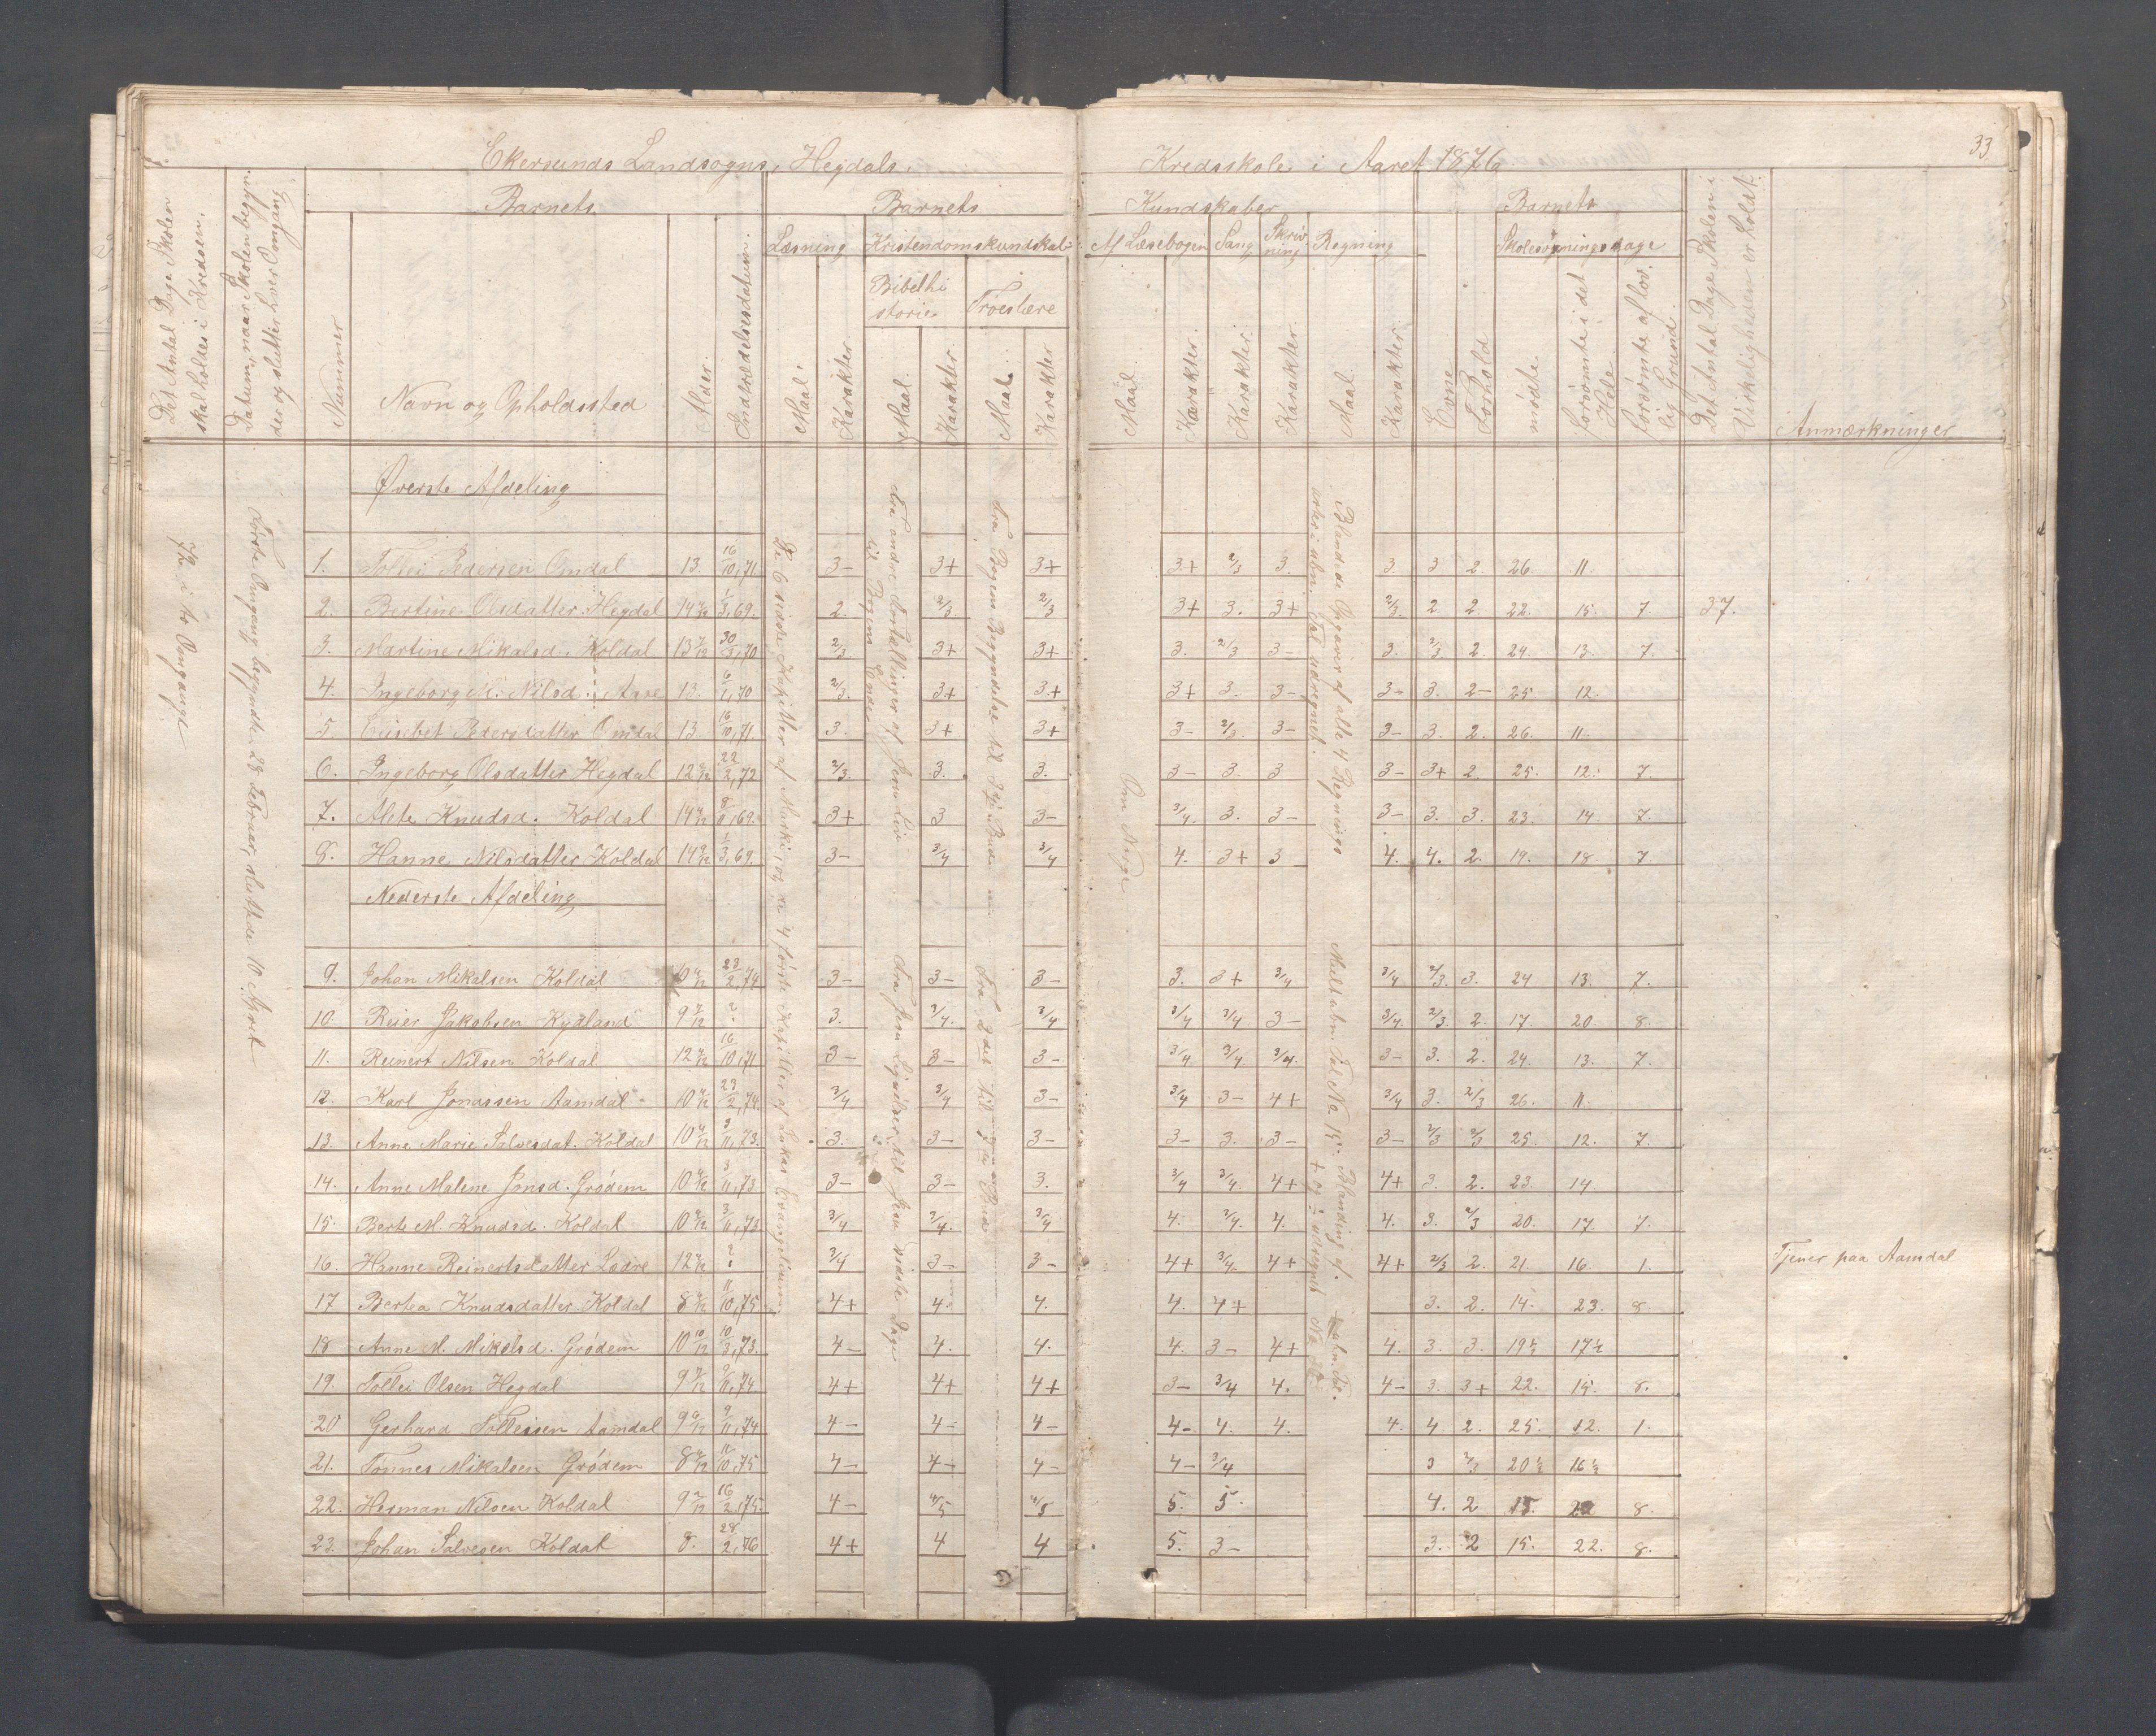 33
Ekersunds Landsogns, Hegdals, Kredsskole i Aaret 1876
Det Antal Dage Skolen skal holdes i Kredsen.
Datum, naar Skolen begynder og slutter hver Omgang.
Barnets
Nummer
Navn og Opholdssted
Alder.
Indtrædelsesdatum.
Barnets Kundskaber
Læsning
Maal.
Karakter.
Kristendomskundskab
Bibelhistorie
Maal.
Karakter.
Troeslære
Maal.
Karakter.
Af Læsebogen
Maal.
Karakter.
Sang
Karakter.
Skrivning
Karakter.
Regning
Maal.
Karakter.
Barnets
Evne
Forhold
Skolesøgningsdage
mødte
forsømte i det Hele
forsømte af lovlig Grund
Det Antal Dage Skolen i Virkeligheden er holdt.
Anmærkninger
i to Omgange
Første Omgang begyndte 28 Februar, sluttede 10 April
De 6 sidste Kapitler af Marki, og de 4 første Kapitler af Lukas Evangelium
Øverste Afdeling
Fra andre Fortællinger af Jesu Liv til Bogens Ende
Fra Bogens Begyndelse til
Om Norge
Blandede Opgaver af alle 4 Regningsarter i ubn. Tal udregnet.
1. Tollei Pedersen Omdal 13. 16/10,71. 3- 3+ 3+ 3+ 2/3 3. 3. 3 2. 26. 11.
2. Bertine Olsdatter Hegdal 14 1/3,69. 2. 2/3. 2/3 3+ 3. 3+ 2/3. 2. 2. 22. 15. 7. 37.
3. Martine Mikalsd. Koldal 13 30/3,70 2/3. 3+ 3+ 3. 2/3 3- 3. 2/3 2. 24. 13. 7.
4. Ingeborg M. Nilsd. Aase 13. 6/1,70 2/3. 3+ 3+ 3+ 3. 3- 3- 3. 2- 25. 12.
5. Elisebet Pedersdatter Omdal 13. 16/10,71. 3. 3+ 3+ 3- 2/3. 3- 3- 3. 2. 26. 11.
6. Ingeborg Olsdatter Hegdal 12 22/2,72 2/3. 3. 3. 3- 3. 3 3- 3+ 2. 25. 12. 7.
7. Alete Knudsd. Koldal 14 8/11,69. 3+ 3 3- 3/4. 3. 3- 3- 3. 3. 23. 14. 7.
8. Hanne Nilsdatter Koldal 14 1/3,69. 3- 3/4 3/4 4. 3+ 3 4. 4. 2. 19. 18. 7
Nederste Afdeling
Fra Jesu Lignelser til Jesu sidste Dage
Fra 2det til
Mult. ubn. Tal No. 15. Blanding af
+ og ÷ udregnet
9. Johan Mikalsen Koldal 28/2,74 3- 3- 3- 3. 3+ 3/4 3/4 2/3. 3. 24 13. 7.
10. Reier Jakobsen Kydland 9 ? 3. 3/4. 3/4 3/4 3/4 3- 3/4. 2/3. 2. 17. 20. 8.
11. Reinert Nilsen Koldal 12 16/10,71 3- 3- 3- 3/4 3/4 3/4. 3- 3. 2. 24. 13. 7.
12. Karl Jonassen Aamdal 10 23/2,74. 3/4 3/4 3- 3/4 3- 4+ 3/4 3. 2/3 26. 11.
13. Anne Marie Salvesdat. Koldal 10 3/11,73. 3. 3- 3- 3- 3. 3- 3- 2/3 2/3 25. 12. 7.
14. Anne Malene Jonsd. Grødem 10 3/11,73 3- 3- 3. 3/4 3/4. 4+ 4+ 3. 2. 23. 14
15. Berte M. Knudsd. Koldal 10 3/11,73 3/4 3/4. 3/4 4. 3/4. 4. 4. 3. 2/3 20. 17. 7.
16. Hanne Reinertsdatter Lædre 12 ? 3/4 3- 3- 4+ 3/4. 4+ 4+ 2/3 2. 21. 16. 1. Tjener paa Aamdal
17 Bertea Knudsdatter Koldal 8 11/10,75 4+ 4. 4. 4. 4+ 3. 2. 14. 23. 8.
18 Anne M. Mikelsd. Grødem 10 10/12 10/3,73. 4- 4. 4. 4. 3- 4+ 4. 3. 3. 19½ 17½
19. Tollei Olsen Hegdal 9 9/11,74 4+ 4+ 4+ 3- 3/4 4. 4- 3. 3+ 22. 15. 8.
20 Gerhard Tolleisen Aamdal 9 9/11,74 4- 4- 4- 4- 4. 4. 4. 4 2. 25. 12. 1.
21. Tønnes Mikalsen Grødem 8 11/10,75 4- 4- 4- 4- 3/4 3 2/3 20½ 16½
22. Herman Nilsen Koldal 9 16/2,75. 4- 4/5 4/5 5. 5. 4. 2 15. 22 8.
23. Johan Salvesen Koldal 8. 28/2,76 4+ 4 4 5. 3- 3. 2 15. 22. 8.